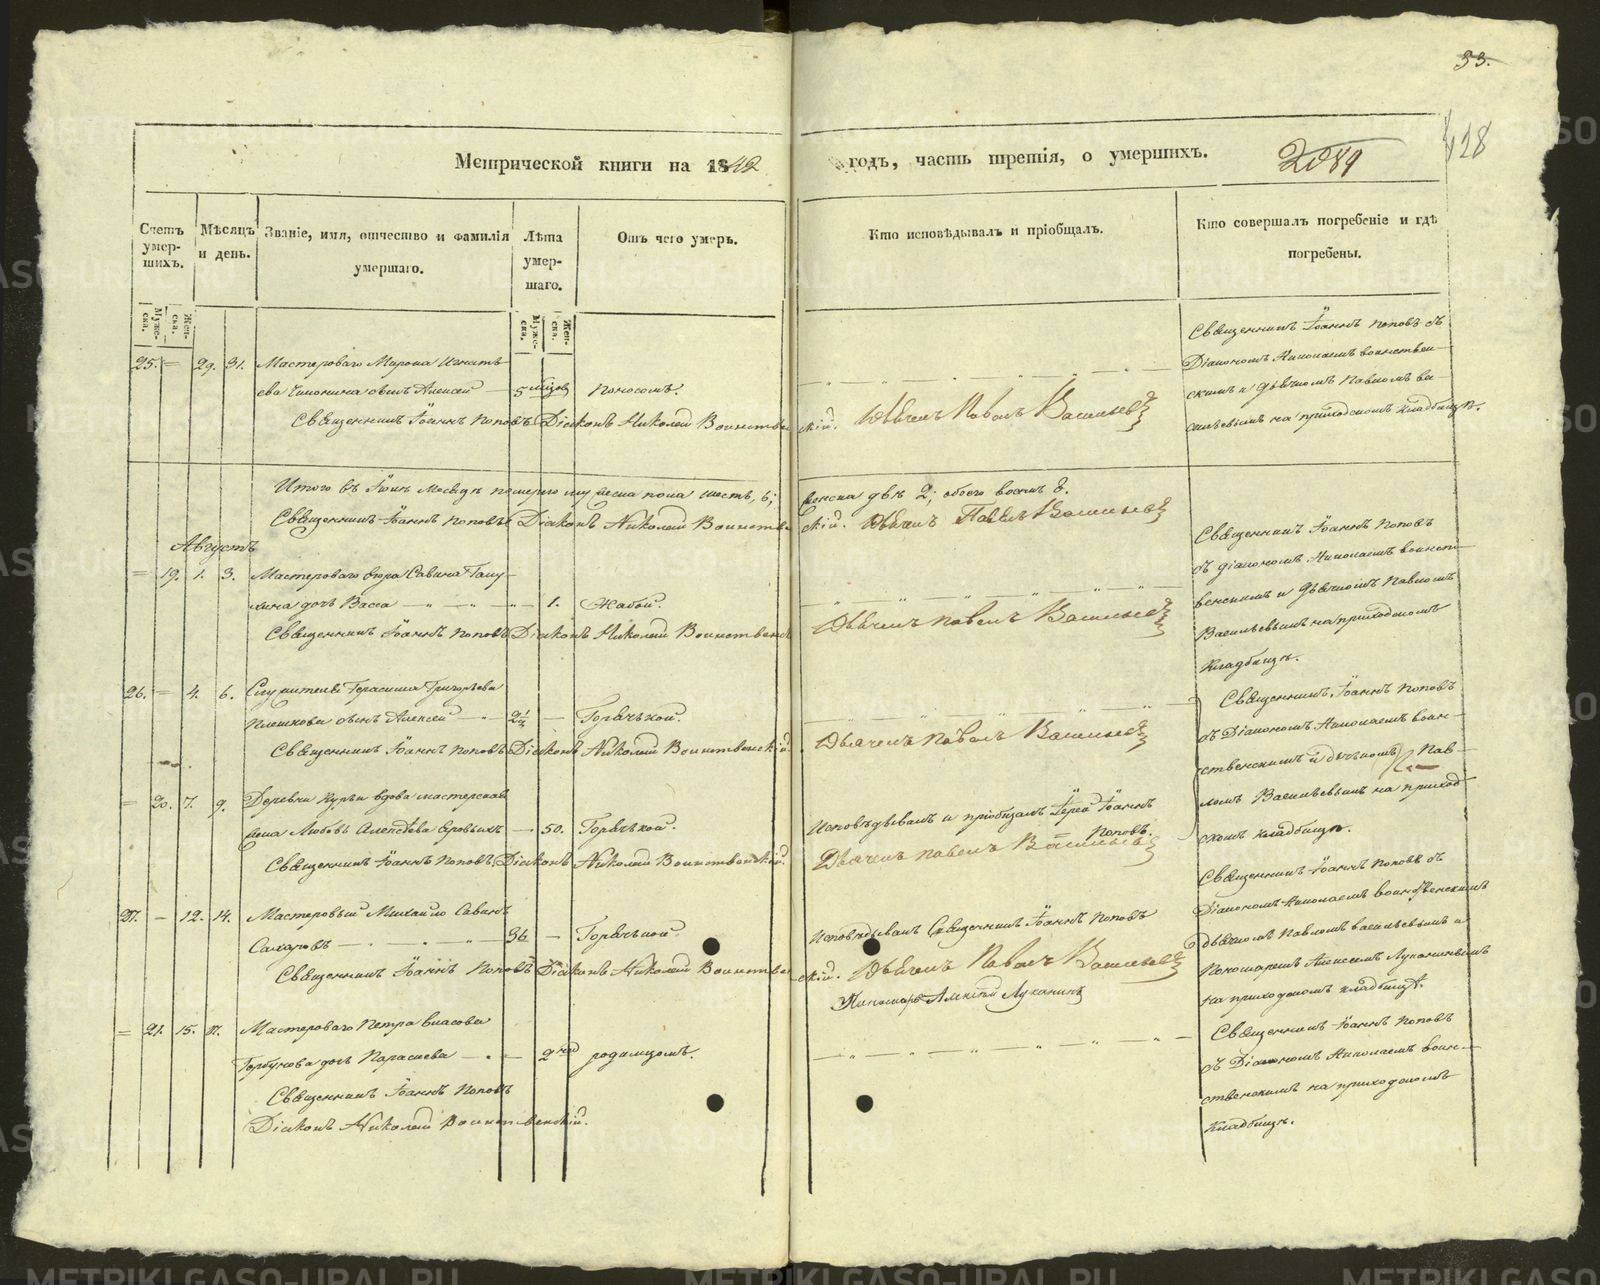 33.
Метрической книги на 1842
годъ, часть третія, о умершихъ.
2089
428
Счетъ умер-шихъ.
Мѣсяцъ и день.
Званіе, имя, отчество и фамилія умершаго.
Лѣта умер-шаго.
Отъ чего умеръ.
Кто исповѣдывалъ и пріобщалъ.
Кто совершалъ погребеніе и гдѣ погребены.
Муже-ска.
Жен-ска.
Муже-ска.
Жен-ска.
25. = 29. 31. Мастероваго Мирона Игнатъ-
ева сынъ Алексей — 5 мѣсяц. Поносомъ.
Священникъ Іоаннъ Поповъ Діаконъ Николай Воинствен
скій. Дьячекъ Павелъ Васильевъ
Священникъ Іоаннъ Поповъ съ
Діакономъ Николаемъ Воинствен-
скимъ и Дьячкомъ Павломъ Ва-
сильевымъ на приходскомъ кладбищѣ.
Итого въ Месяцѣ померло мужеска пола шесть, 6;
женска двѣ 2; обоего восемь 8.
Священникъ Іоаннъ Поповъ Діаконъ Николай Воинствен
скій. Дьячекъ Павелъ Васильевъ
Августъ
= 19. 1. 3. Мастероваго Савина Галу-
хина дочь Васса — 1. Жабой.
Священникъ Іоаннъ Поповъ Діаконъ Николай Воинственск
Дьячекъ Павелъ Васильевъ
Священникъ Іоаннъ Поповъ
съ діакономъ Николаемъ Воинст-
венскимъ и Дьячкомъ Павломъ
Васильевымъ на приходскомъ
Кладбищѣ.
26. = 4. 6. Служителя Герасима Григорьева
Плешкова сынъ Алексей — 2½ — Горячкой.
Священникъ Іоаннъ Поповъ Діаконъ Николай Воинственскій.
Дьячекъ Павелъ Васильевъ
Священникъ Іоаннъ Поповъ
съ Діакономъ Николаемъ Воин-
ственскимъ и дьячкомъ Пав-
ломъ Васильевымъ на приход-
скомъ кладбищѣ.
= 20. 7. 9. Деревни Курьи вдова мастерская
жена Любовь Алексѣева — 50. Горячкой.
Исповѣдывалъ и пріобщалъ Іерей Іоаннъ
Поповъ.
Священникъ Іоаннъ Поповъ. Діаконъ Николай Воинственскій.
Дьячекъ Павелъ Васильевъ
27. — 12. 14. Мастеровый Михайло Савинъ
Сахаровъ — 36 — Горячкой.
Исповѣдывалъ Священникъ Іоаннъ Поповъ
Священникъ Іоаннъ Поповъ Діаконъ Николай Воинствен
скій. Дьячекъ Павелъ Васильевъ
Пономарь Алексей Луканинъ
Священникъ Іоаннъ Поповъ съ
Діакономъ Николаемъ Воинственскимъ
дьячкомъ Павломъ Васильевымъ и
Пономаремъ Алексеемъ Луканинымъ
на приходскомъ кладбищѣ.
= 21. 15. 17. Мастероваго Петра Власова
Горбунова дочь Параскева — 2 нед родимцомъ.
Священникъ Іоаннъ Поповъ
Діаконъ Николай Воинственскій.
Священникъ Іоаннъ Поповъ
съ Діакономъ Николаемъ Воин-
ственскимъ на приходскомъ
кладбищѣ.
METRIKI.GASO-URAL.RU